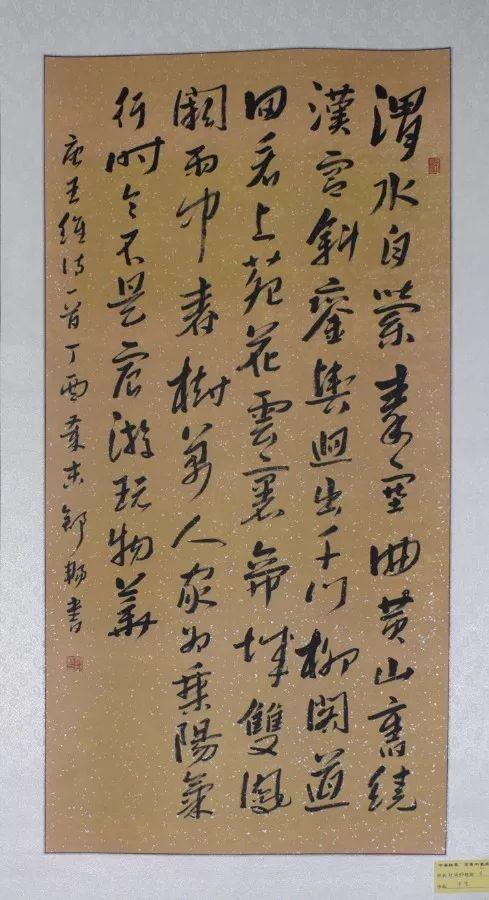 渭水自縈秦塞曲黄山舊繞
漢宫斜鑾輿迥出千门柳閣道
回看上苑花雲裏帝城雙鳳
闕雨中春樹萬人家为乘陽氣
行时令不是宸游玩物華
唐王維诗一首丁酉末書